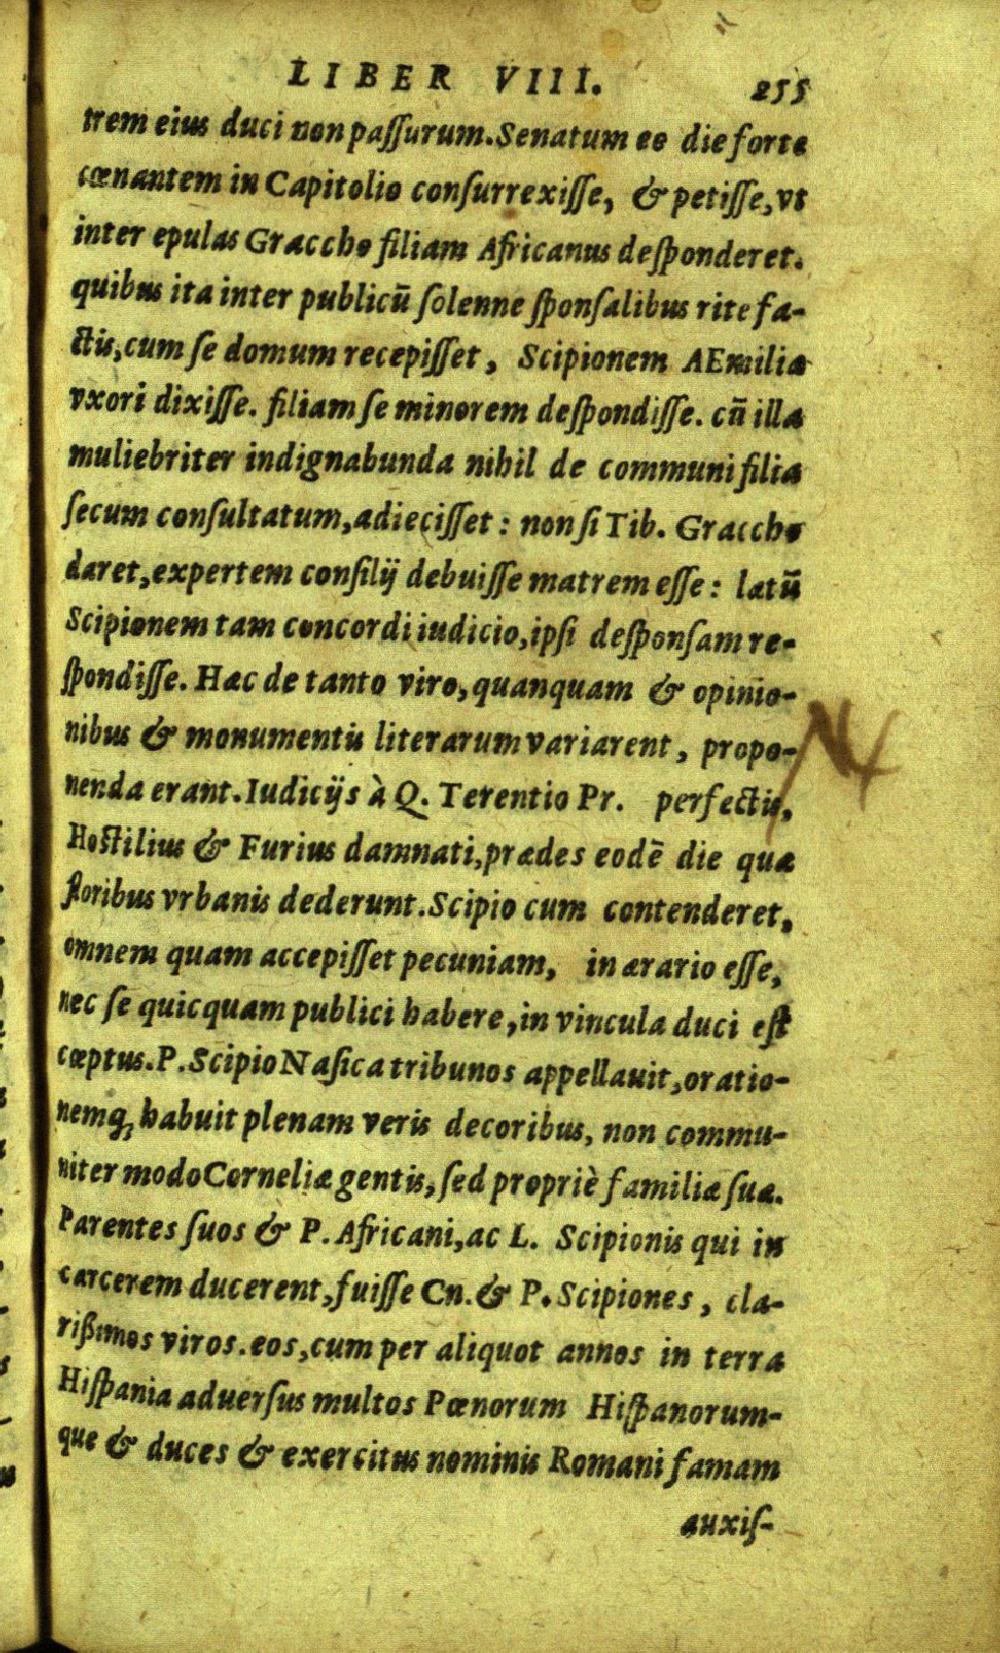 LIBER VIII. 255
trem eius duci non paſſurum. Senatum eo die forte
cœnantem in Capitolio conſurrexiſſe, & petiſſe, vt
inter epulas Graccho filiam Africanus deſponderet.
quibus ita inter publicū ſolenne ſponſalibus rite fa-
ctis, cum ſe domum recepiſſet, Scipionem AEmiliæ
vxori dixiſſe. filiam ſe minorem deſpondiſſe. cū illa
muliebriter indignabunda nihil de communi filia
ſecum conſultatum, adieciſſet: non ſi Tib. Graccho
daret, expertem conſilij debuiſſe matrem eſſe: latū
Scipionem tam concordi iudicio, ipſi deſponſam re-
ſpondiſſe. Hæc de tanto viro, quanquam & opinio-
nibus & monumentis literarum variarent, propo-
nenda erant. Iudicijs à Q. Terentio Pr. perfectis,
Hoſtilius & Furius damnati, prædes eodē die quæ
ſtoribus vrbanis dederunt. Scipio cum contenderet,
omnem quam accepiſſet pecuniam, in ærario eſſe,
nec ſe quicquam publici habere, in vincula duci eſt
cœptus. P. Scipio Naſica tribunos appellauit, oratio-
nemq; habuit plenam veris decoribus, non commu-
niter modo Corneliæ gentis, ſed propriè familiæ ſuæ.
Parentes ſuos & P. Africani, ac L. Scipionis qui in
carcerem ducerent, fuiſſe Cn. & P. Scipiones, cla-
rißimos viros. eos, cum per aliquot annos in terra
Hiſpania aduerſus multos Pœnorum Hiſpanorum-
que & duces & exercitus nominis Romani famam
auxiſ-